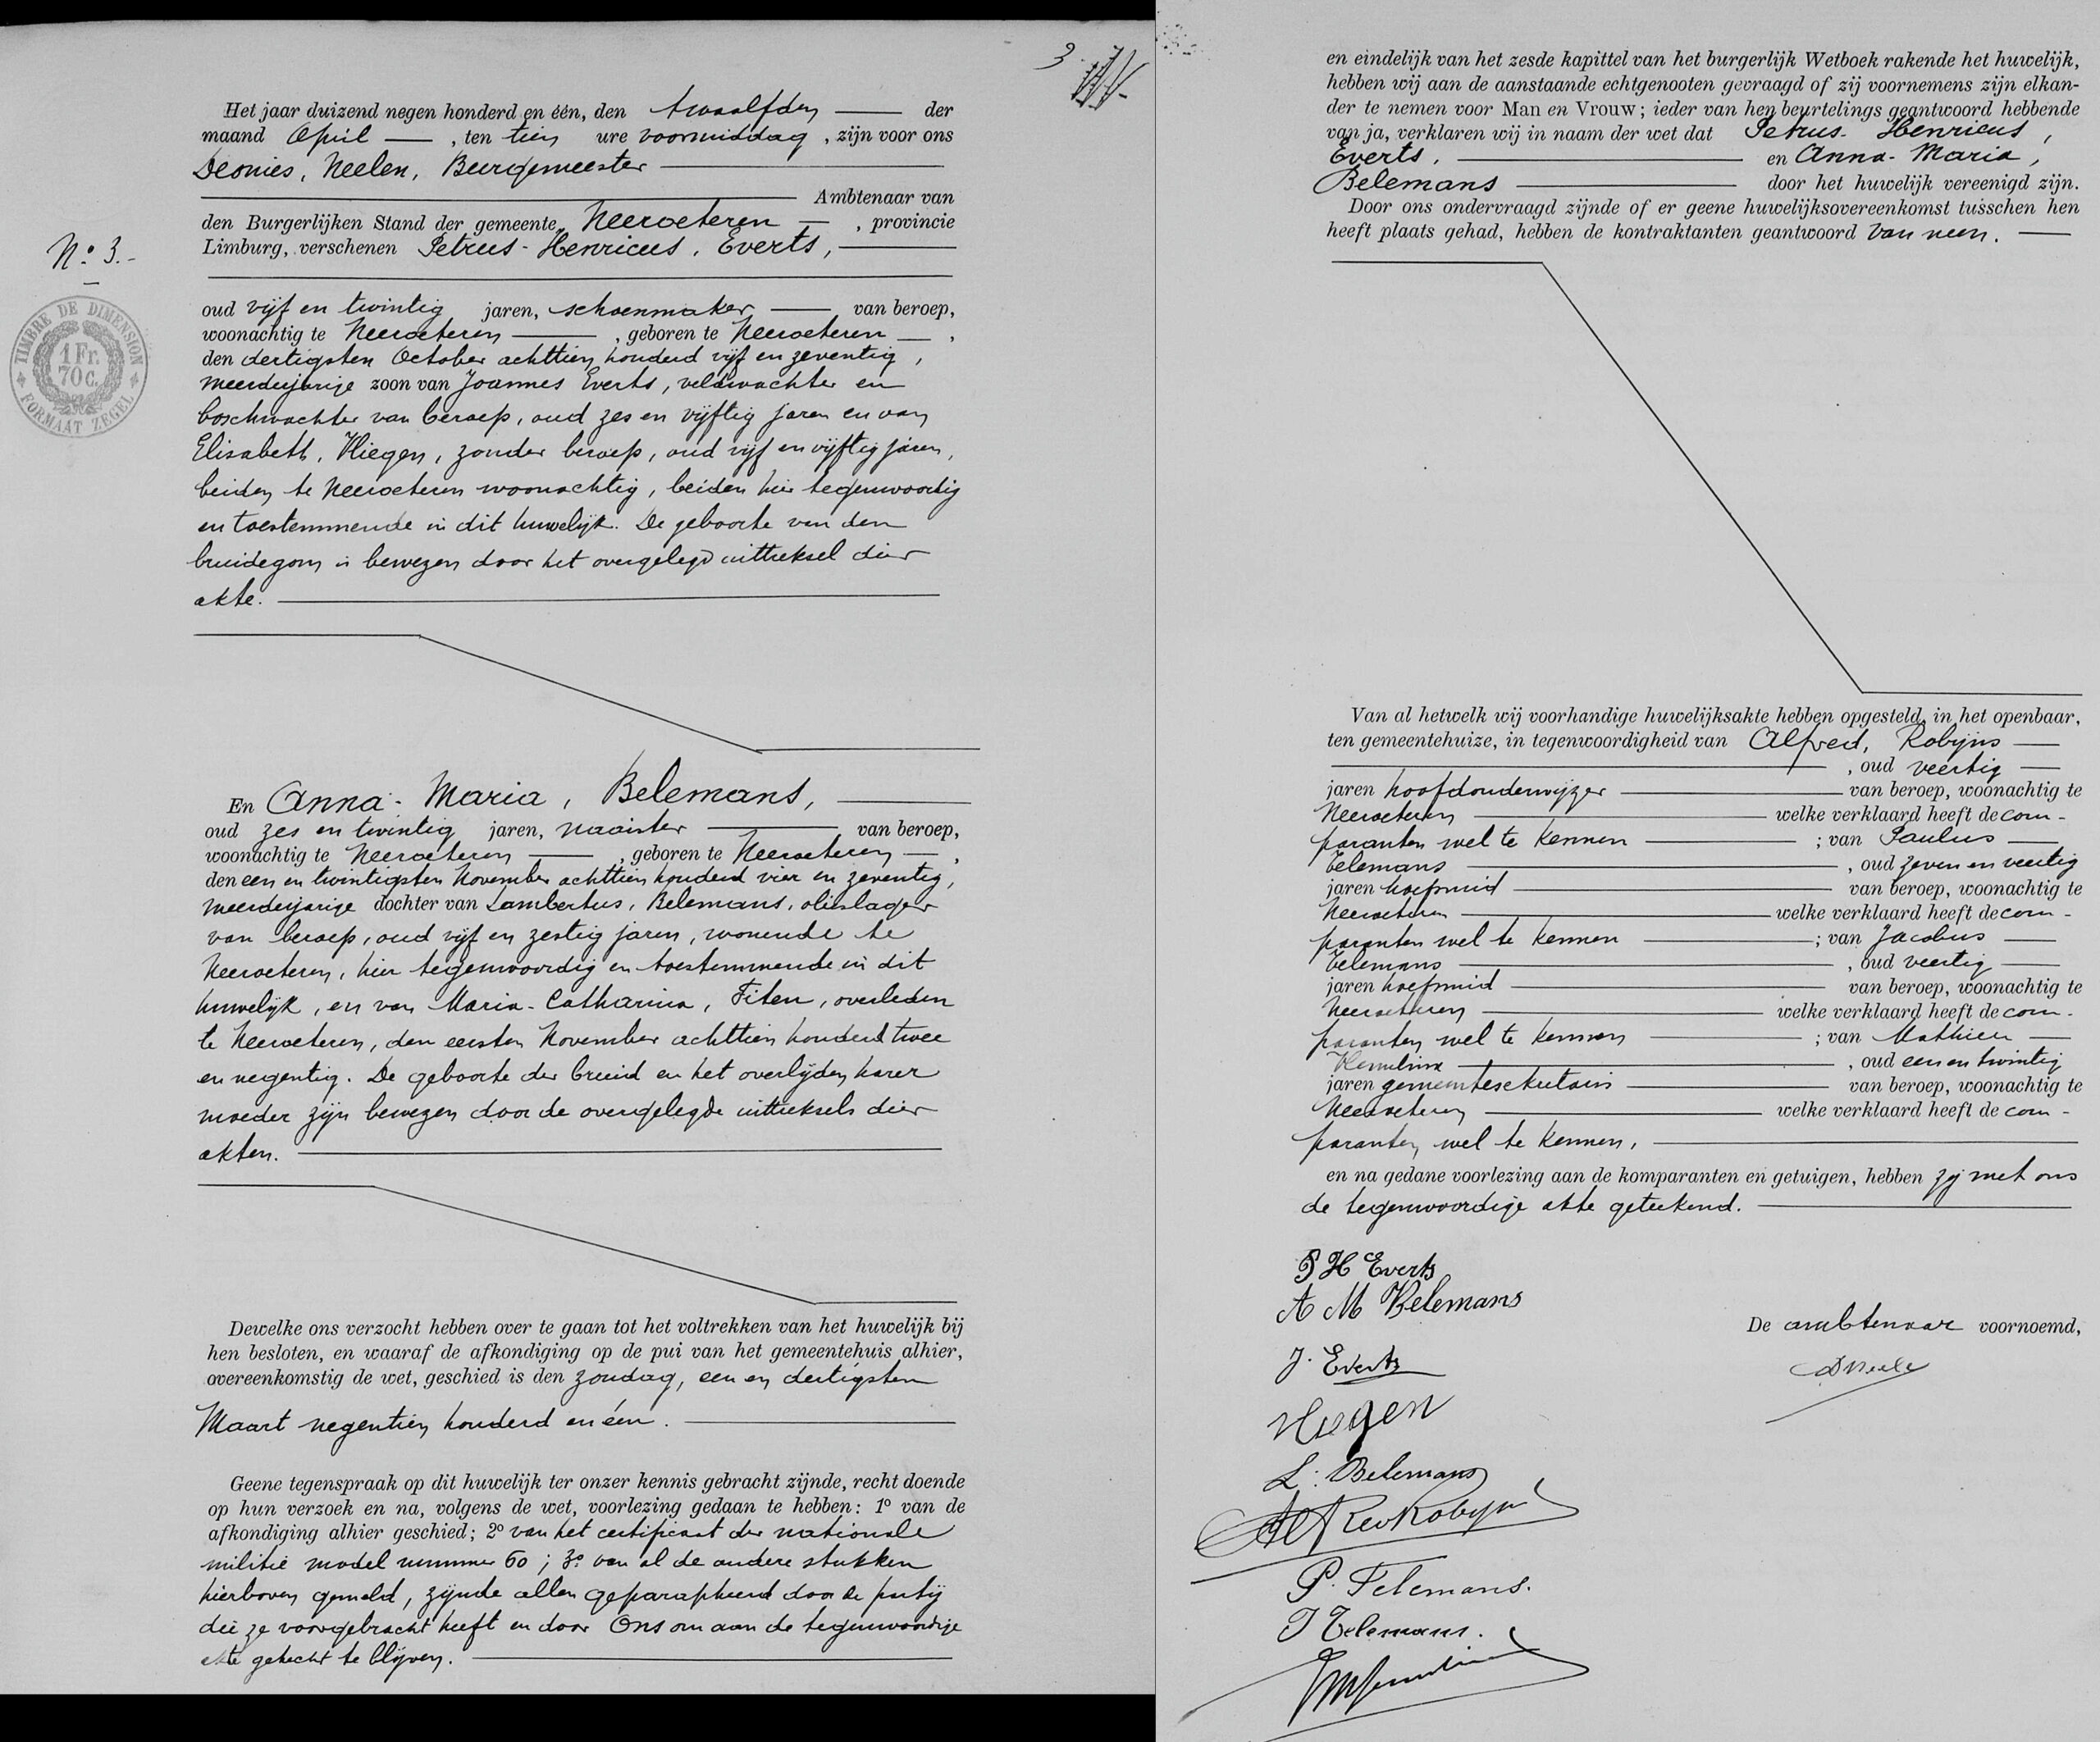 3
Het jaar duizend negen honderd en één, den twaalfden der
maand April, ten tien ure voormiddag, zijn voor ons
Deonies, Neelen, Burgemeester
Ambtenaar van
den Burgerlijken Stand der gemeente Neeroeteren, provincie
Limburg, verschenen Petrus-Henricus, Everts,
N° 3.-
TIMBRE DE DIMENSION
1 Fr.
70 C.
FORMAAT ZEGEL
oud vijf en twintig jaren, schoenmaker van beroep,
woonachtig te Neeroeteren, geboren te Neeroeteren,
den dertigsten October achttien honderd vijf en zeventig,
meerderjarige zoon van Joannes Everts, veldwachter en
boschwachter van beroep, oud zes en vijftig jaren en van
Elisabeth, Vliegen, zonder beroep, oud vijf en vijftig jaren,
beiden te Neeroeteren woonachtig, beiden hier tegenwoordig
en toestemmende in dit huwelijk. De geboorte van den
bruidegom is bewezen door het overgelegd uittreksel dier
akte.
En Anna-Maria, Belemans,
oud zes en twintig jaren, naaister van beroep,
woonachtig te Neeroeteren, geboren te Neeroeteren,
den een en twintigsten November achttien honderd vier en zeventig,
meerderjarige dochter van Lambertus, Belemans, olieslager
van beroep, oud vijf en zestig jaren, wonende te
Neeroeteren, hier tegenwoordig en toestemmende in dit
huwelijk, en van Maria-Catharina, Filen, overleden
te Neeroeteren, den eersten November achttien honderd twee
en negentig. De geboorte der bruid en het overlijden harer
moeder zijn bewezen door de overgelegde uittreksels dier
akten.
Dewelke ons verzocht hebben over te gaan tot het voltrekken van het huwelijk bij
hen besloten, en waaraf de afkondiging op de pui van het gemeentehuis alhier,
overeenkomstig de wet, geschied is den zondag, een en dertigsten
Maart negentien honderd en één.
Geene tegenspraak op dit huwelijk ter onzer kennis gebracht zijnde, recht doende
op hun verzoek en na, volgens de wet, voorlezing gedaan te hebben: 1° van de
afkondiging alhier geschied; 2° van het certificaat der nationale
militie model nummer 60; 3° van al de andere stukken
hierboven gemeld, zijnde allen geparapheerd door de partij
die ze voorgebracht heeft en door Ons om aan de tegenwoordige
akte gehecht te blijven.
en eindelijk van het zesde kapittel van het burgerlijk Wetboek rakende het huwelijk,
hebben wij aan de aanstaande echtgenooten gevraagd of zij voornemens zijn elkan-
der te nemen voor Man en Vrouw; ieder van hen beurtelings geantwoord hebbende
van ja, verklaren wij in naam der wet dat Petrus-Henricus,
Everts, en Anna-Maria,
Belemans door het huwelijk vereenigd zijn.
Door ons ondervraagd zijnde of er geene huwelijksovereenkomst tusschen hen
heeft plaats gehad, hebben de kontraktanten geantwoord van neen.
Van al hetwelk wij voorhandige huwelijksakte hebben opgesteld, in het openbaar,
ten gemeentehuize, in tegenwoordigheid van Alfred, Robijns
, oud veertig
jaren hoofdonderwijzer van beroep, woonachtig te
Neeroeteren welke verklaard heeft de com-
paranten wel te kennen; van Paulus
Telemans, oud zeven en veertig
jaren hoefsmid van beroep, woonachtig te
Neeroeteren welke verklaard heeft de com-
paranten wel te kennen; van Jacobus
Telemans, oud veertig
jaren hoefsmid van beroep, woonachtig te
Neeroeteren welke verklaard heeft de com-
paranten wel te kennen; van Mathieu
, oud een en twintig
jaren gemeentesekretaris van beroep, woonachtig te
Neeroeteren welke verklaard heeft de com-
paranten wel te kennen,
en na gedane voorlezing aan de komparanten en getuigen, hebben zij met ons
de tegenwoordige akte geteekend.
P H Everts
A M Belemans
De ambtenaar voornoemd,
J. Everts
DNeele
Vliegen
L. Belemans
Alfred Robijns
P. Telemans.
J Telemans.